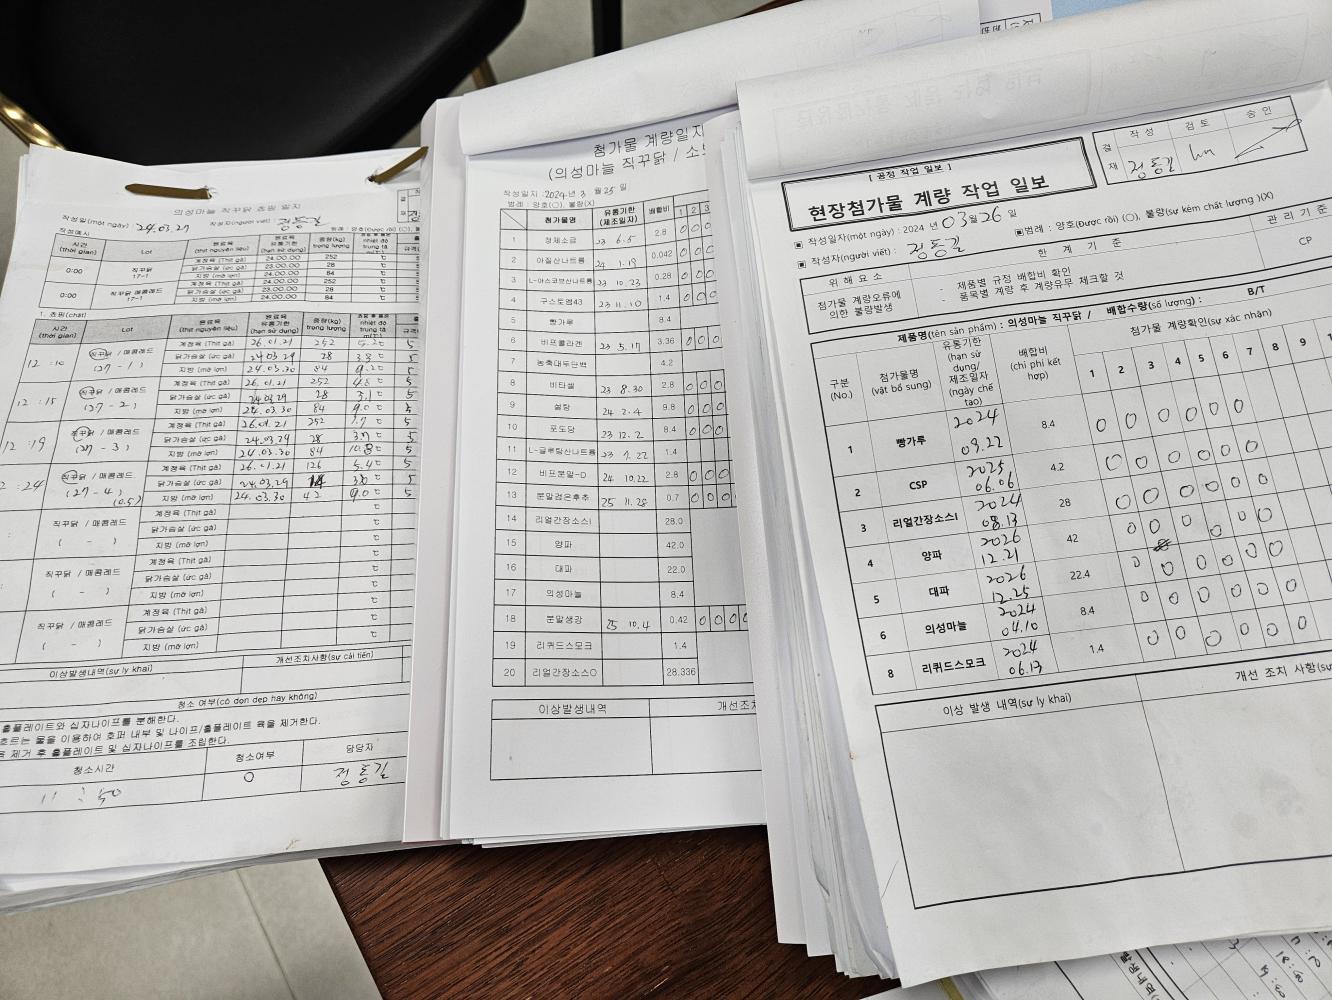 의성마늘 직꾸닭 쵸핑 일지
작성일(một ngày) : 24.03.27
작성자(người viết) : 정동길
작성예시
범례 : 양호(Được rồi) (○),
시간(thời gian) Lot 원료육(thịt nguyên liệu) 원료육 유통기한(hạn sử dụng) 중량(kg) trọng lượng
0:00 직꾸닭 17-1 계정육 (Thịt gà) 24.00.00 252 ℃
닭가슴살 (ức gà) 23.00.00 28 ℃
지방 (mỡ lợn) 24.00.00 84 ℃
0:00 직꾸닭 매콤레드 17-1 계정육 (Thịt gà) 24.00.00 252 ℃
닭가슴살 (ức gà) 23.00.00 28 ℃
지방 (mỡ lợn) 24.00.00 84 ℃
1. 쵸핑(chát)
시간(thời gian) Lot 원료육(thịt nguyên liệu) 원료육 유통기한(hạn sử dụng) 중량(kg) trọng lượng
12 : 10 직꾸닭 / 매콤레드 (27 - 1) 계정육 (Thịt gà) 26.01.21 252 5
닭가슴살 (ức gà) 24.03.29 28 5
지방 (mỡ lợn) 24.03.30 84 9.2℃ 5
12 : 15 직꾸닭 / 매콤레드 (27 - 2) 계정육 (Thịt gà) 26.01.21 252 5
닭가슴살 (ức gà) 24.03.29 28 3.1℃ 5
지방 (mỡ lợn) 24.03.30 84 9.0℃ 5
12 : 19 직꾸닭 / 매콤레드 (27 - 3) 계정육 (Thịt gà) 26.01.21 252 5
닭가슴살 (ức gà) 24.03.29 28 5
지방 (mỡ lợn) 24.03.30 84 10.8℃ 5
: 24 직꾸닭 / 매콤레드 (27 - 4) (0.5) 계정육 (Thịt gà) 26.01.21 126 5.4℃ 5
닭가슴살 (ức gà) 24.03.29 14 5
지방 (mỡ lợn) 24.03.30 42 9.0℃ 5
직꾸닭 / 매콤레드 ( - ) 계정육 (Thịt gà) ℃
닭가슴살 (ức gà) ℃
지방 (mỡ lợn) ℃
직꾸닭 / 매콤레드 ( - ) 계정육 (Thịt gà) ℃
닭가슴살 (ức gà) ℃
지방 (mỡ lợn) ℃
직꾸닭 / 매콤레드 ( - ) 계정육 (Thịt gà) ℃
닭가슴살 (ức gà) ℃
지방 (mỡ lợn) ℃
이상발생내역(sự ly khai) 개선조치사항(sự cải tiến)
청소 여부(có dọn dẹp hay không)
홀플레이트와 십자나이프를 분해한다.
흐르는 물을 이용하여 호퍼 내부 및 나이프/홀플레이트 육을 제거한다.
육 제거 후 홀플레이트 및 십자나이프를 조립한다.
청소시간 청소여부 담당자
11 : 50 ○ 정동길
첨가물 계량일지
(의성마늘 직꾸닭 / 소
작성일자 : 2024 년 3 월 25 일
범례 : 양호(○), 불량(X)
첨가물명 유통기한(제조일자) 배합비 1 2 3
1 정제소금 23 6.5 2.8 0 0 0
2 아질산나트륨 24 1.19 0.042 0 0 0
3 L-아스코브산나트륨 23 10.23 0.28 0 0 0
4 구스토렘43 23 11.10 1.4 0 0 0
5 빵가루 8.4
6 비프콜라겐 23 5.17 3.36 0 0 0
7 농축대두단백 4.2
8 비타셀 23 8.30 2.8 0 0 0
9 설탕 24 2.4 9.8 0 0 0
10 포도당 23 12.2 8.4 0 0 0
11 L-글루탐산나트륨 23 7.22 1.4
12 비프분말-D 24 10.22 2.8 0 0 0
13 분말검은후추 25 11.28 0.7 0 0 0 0
14 리얼간장소스I 28.0
15 양파 42.0
16 대파 22.0
17 의성마늘 8.4
18 분말생강 25 10.4 0.42 0 0 0 0
19 리퀴드스모크 1.4
20 리얼간장소스O 28.336
이상발생내역 개선조치
[ 공정 작업 일보 ]
현장첨가물 계량 작업 일보
결재 작성 검토 승인
정동길
▣ 작성일자(một ngày) : 2024 년 03월 26 일
▣ 작성자(người viết) : 정동길
▣범례 : 양호(Được rồi) (○), 불량(sự kém chất lượng )(X)
위 해 요 소 한 계 기 준 관 리 기 준
첨가물 계량오류에 의한 불량발생
- 제품별 규정 배합비 확인
- 품목별 계량 후 계량유무 체크할 것
CP
제품명(tên sản phẩm) : 의성마늘 직꾸닭 / 배합수량(số lượng) : B/T
구분(No.) 첨가물명(vật bổ sung) 유통기한(hạn sử dụng/ 제조일자(ngày chế tạo) 배합비(chi phí kết hợp) 첨가물 계량확인(sự xác nhận)
1 2 3 4 5 6 7 8 9
1 빵가루 2024 09.22 8.4 0 0 0 0 0 0
2 CSP 2025 06.06 4.2 0 0 0 0 0 0
3 리얼간장소스I 2024 08.13 28 0 0 0 0 0 0
4 양파 2026 12.21 42 0 0 0 0 0 0
5 대파 2026 12.25 22.4 0 0 0 0 0 0
6 의성마늘 2024 04.10 8.4 0 0 0 0 0 0
8 리퀴드스모크 2024 06.13 1.4 0 0 0 0 0 0
이상 발생 내역(sự ly khai) 개선 조치 사항(sự
발생내역